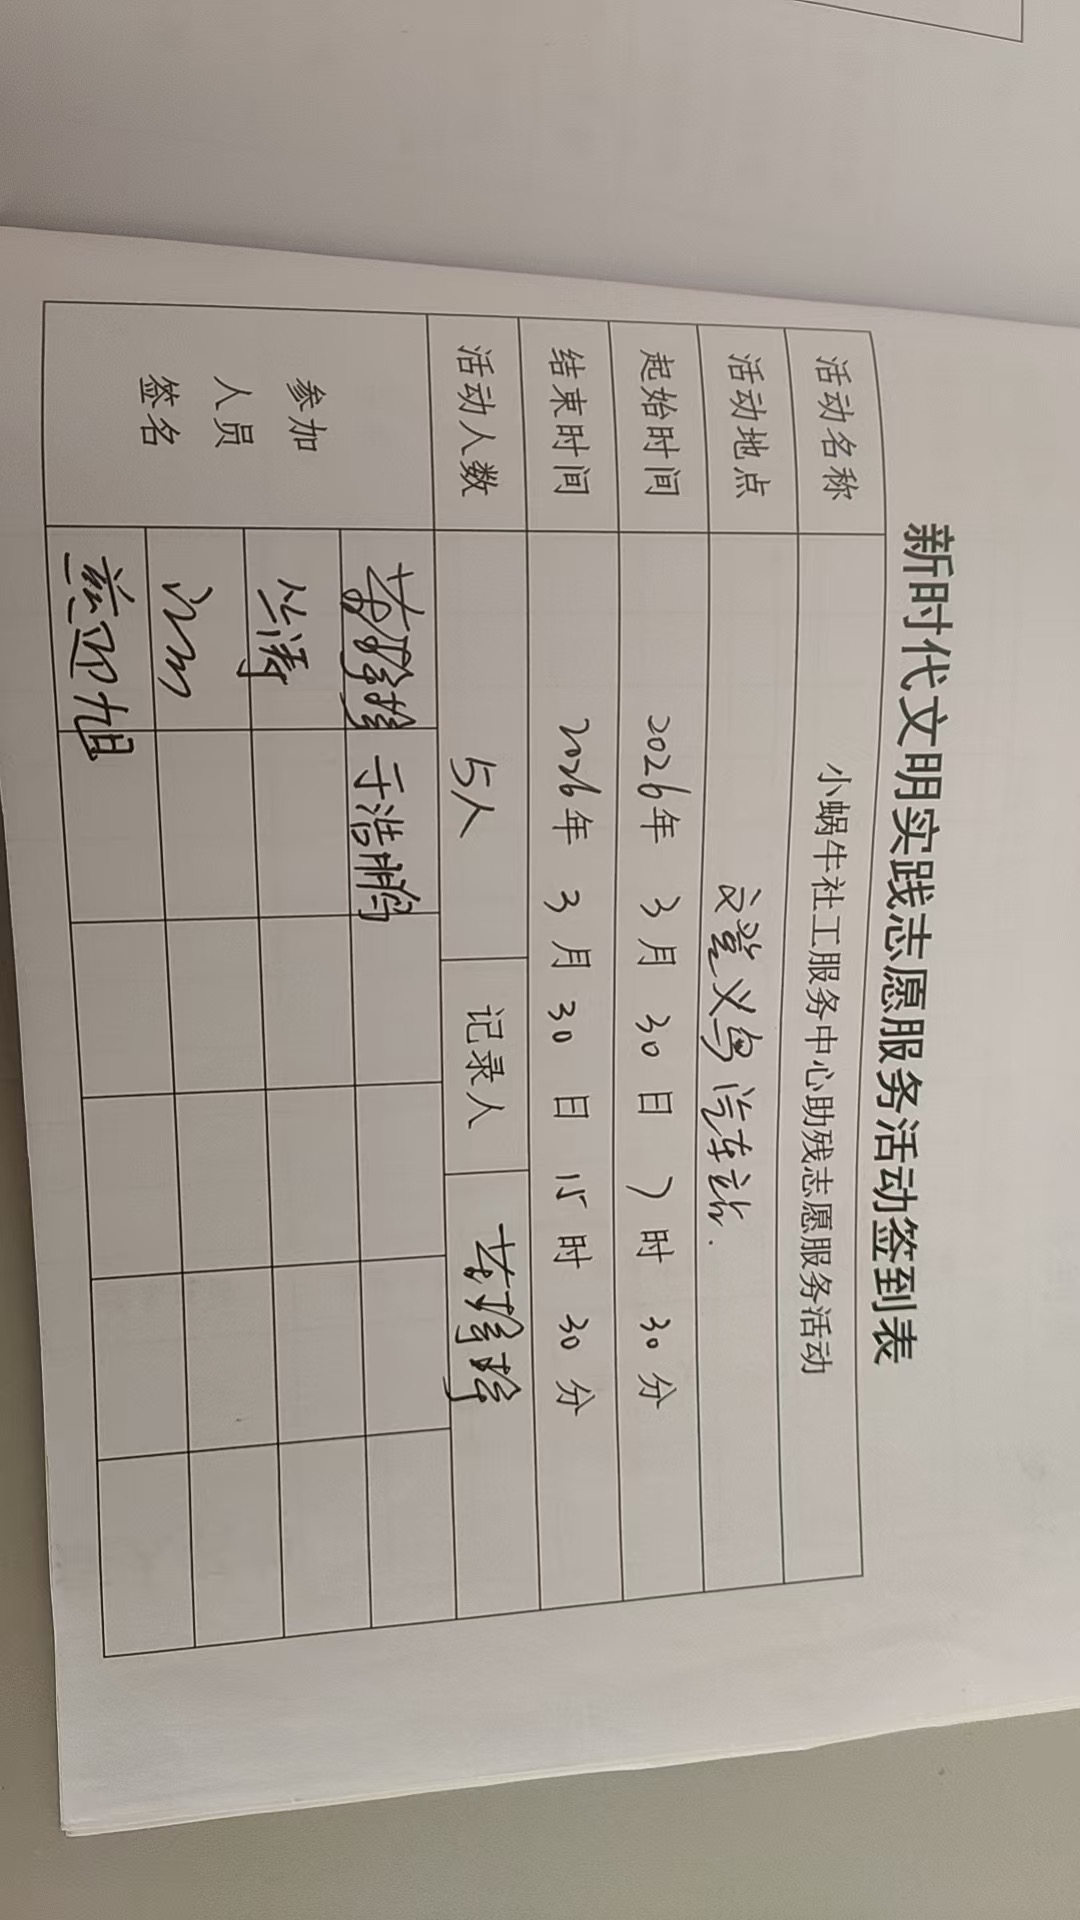 新时代文明实践志愿服务活动签到表
活动名称 小蜗牛社工服务中心助残志愿服务活动
活动地点 文登义乌汽车站.
起始时间 2026年 3月 30日 7时 30分
结束时间 2026年 3月 30日 15时 30分
活动人数 5人 记录人
参加人员签名 于浩鹏
丛涛